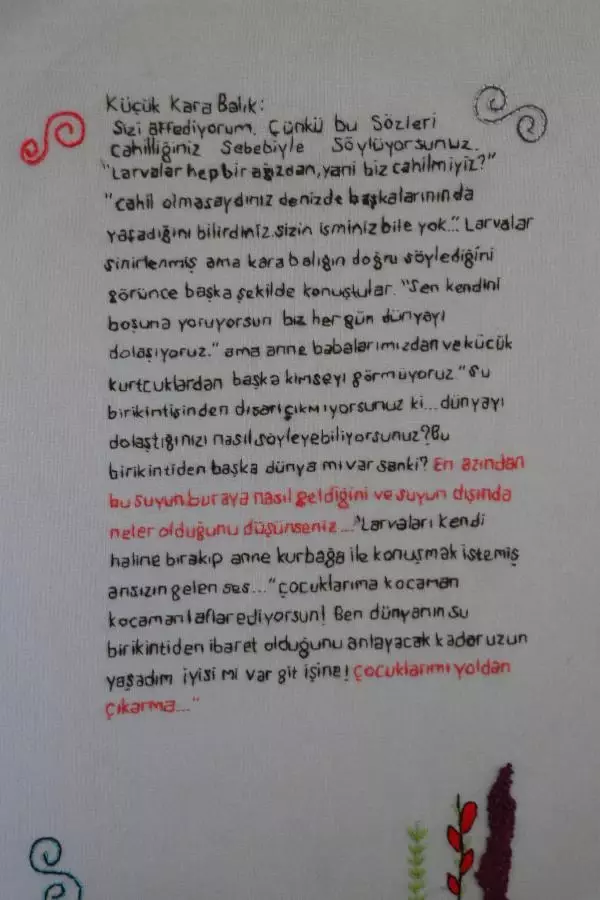 Küçük Kara Balık:
Sizi affediyorum. Çünkü bu Sözleri
cahilliğiniz Sebebiyle Söylüyorsunuz.
"Larvalar hep bir ağızdan, yani biz cahilmiyiz?"
"cahil olmasaydınız denizde başkalarınında
yaşadığını bilirdiniz. sizin isminiz bile yok.". Larvalar
sinirlenmiş ama kara balığın doğru söylediğini
görünce başka şekilde konuştular. "Sen kendini
boşuna yoruyorsun biz her gün dünyayı
dolaşıyoruz." ama anne babalarımızdan ve kücük
kurtcuklardan başka kimseyi görmüyoruz "Su
birikintisinden dışarı çıkmıyorsunuz ki... dünyayı
dolaştığınızı nasıl söyleyebiliyorsunuz? Bu
birikintiden başka dünya mı var sanki? En azından
bu suyun buraya nasıl geldiğini ve suyun dışında
neler olduğunu düşünseniz..." Larvaları kendi
haline bırakıp anne kurbağa ile konuşmak istemiş
ansızın gelen ses... "çocuklarıma kocaman
kocaman laflar ediyorsun! Ben dünyanın su
birikintiden ibaret olduğunu anlayacak kadar uzun
yaşadım iyisi mi var git işine! Çocuklarımı yoldan
çıkarma..."